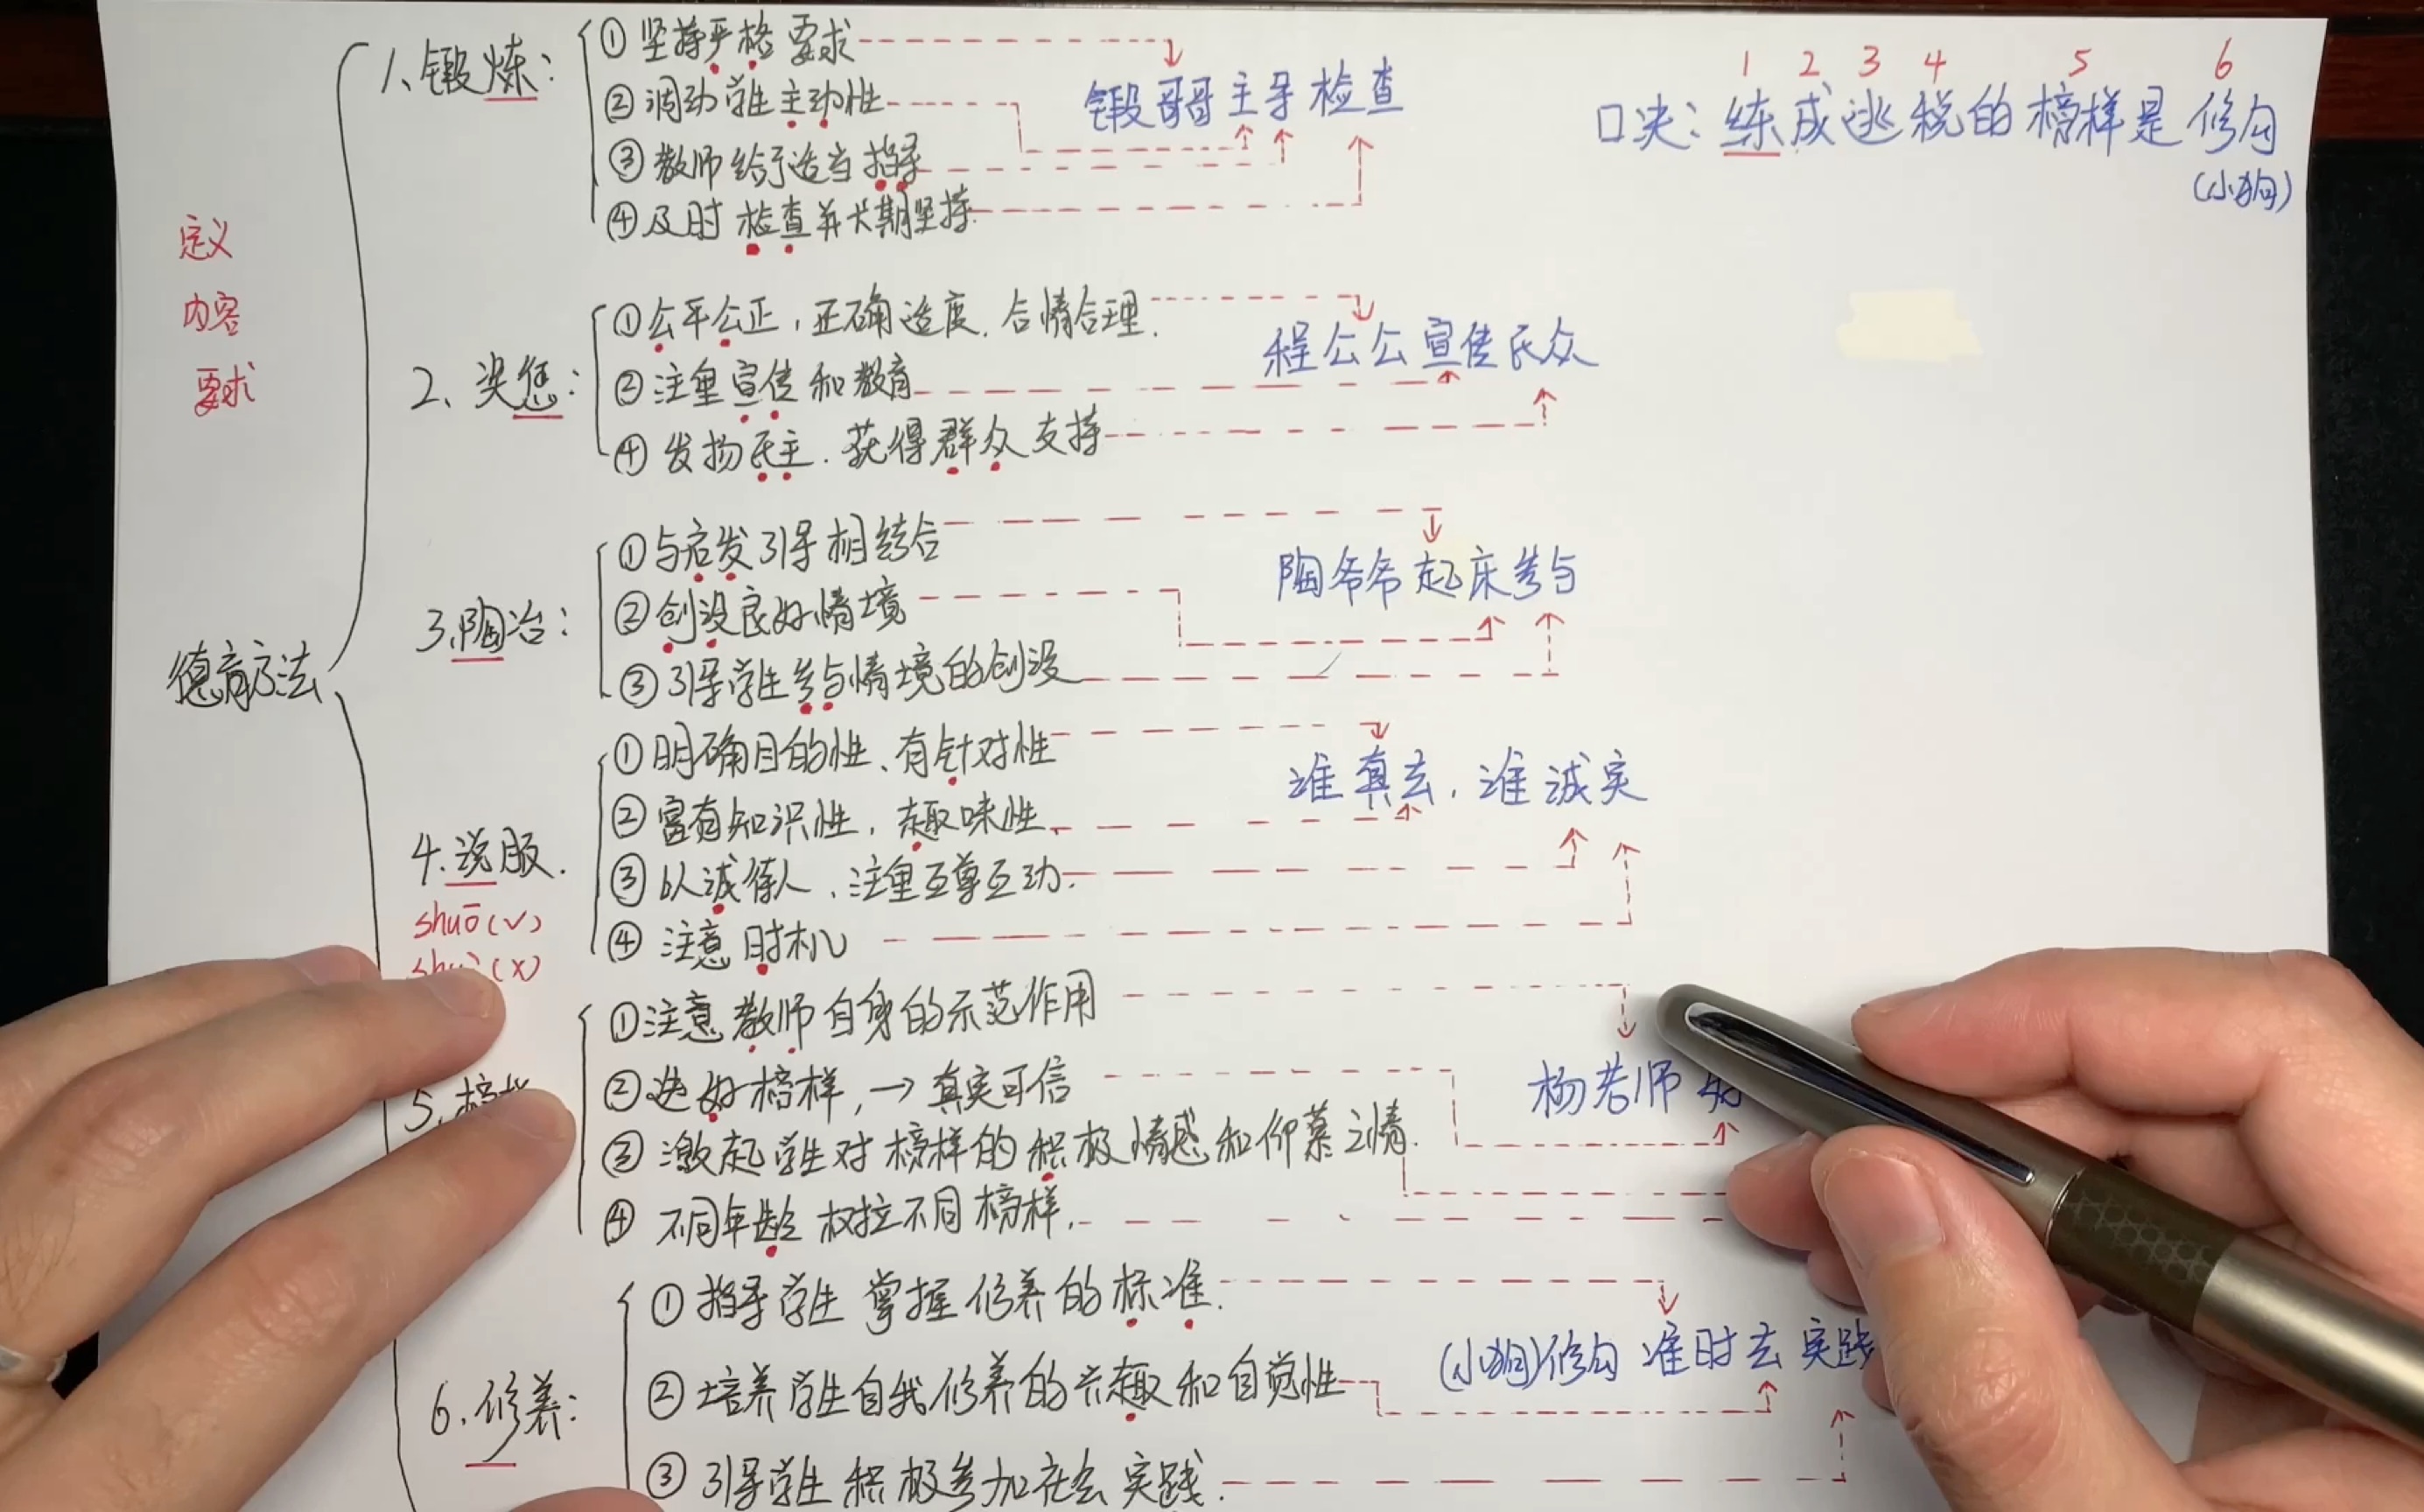 1、锻炼：
① 坚持严格要求
② 调动学生主动性
③ 教师给予适当指导
④ 及时检查并长期坚持
锻哥哥主导检查
1 2 3 4 5 6
口决：练成逃税的榜样是修勾
(小狗)
定义
内容
要求
德育方法
2、奖惩：
① 公平公正，正确适度，合情合理.
② 注重宣传和教育
④ 发扬民主. 获得群众支持
程公公宣传民众
3.陶冶：
① 与启发引导相结合
② 创设良好情境
③ 引导学生参与情境的创设
陶爷爷起床参与
4.说服.
shuō(√)
(×)
① 明确目的性、有针对性
② 富有知识性，趣味性、
③ 以诚待人，注重互尊互动.
④ 注意时机
谁真去，谁诚实
5.榜
① 注意教师自身的示范作用
② 选好榜样，→真实可信
③ 激起学生对榜样的积极情感和仰慕之情.
④ 不同年龄树立不同榜样.
杨老师
6.修养：
① 指导学生掌握修养的标准.
② 培养学生自我修养的兴趣和自觉性
③ 引导学生积极参加社会实践.
(小狗)修勾准时去实践